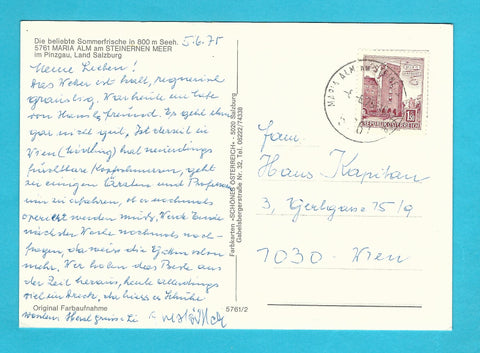 Die beliebte Sommerfrische in 800 m Seeh.
5761 MARIA ALM am STEINERNEN MEER
im Pinzgau, Land Salzburg
5.6.75
Meine Lieben!
Das Wetter ist kalt, regnerisch
grauslig. War heute am Grabe
von Freund. Es geht ihm
gar nicht gut, ist derzeit in
Wien hat neuerdings
furchtbare Kopfschmerzen, geht
zu einigen Ärzten und Professoren
um zu erfahren, ob er nochmals
operiert werden muß. Werde Ende
nächster Woche nochmals nach-
fragen, da weiss die schon
mehr. Wir holen das Beste aus
der Zeit heraus, heute allerdings
Herzl. grüsst
Original Farbaufnahme
5761/2
Farbkarten «SCHÖNES ÖSTERREICH» - 5020 Salzburg
Gabelsbergerstraße Nr. 32, Tel. 06222/74338
MARIA ALM AM
REPUBLIK ÖSTERREICH
Fam.
Hans Kapitan
3, 15/9
1030 Wien